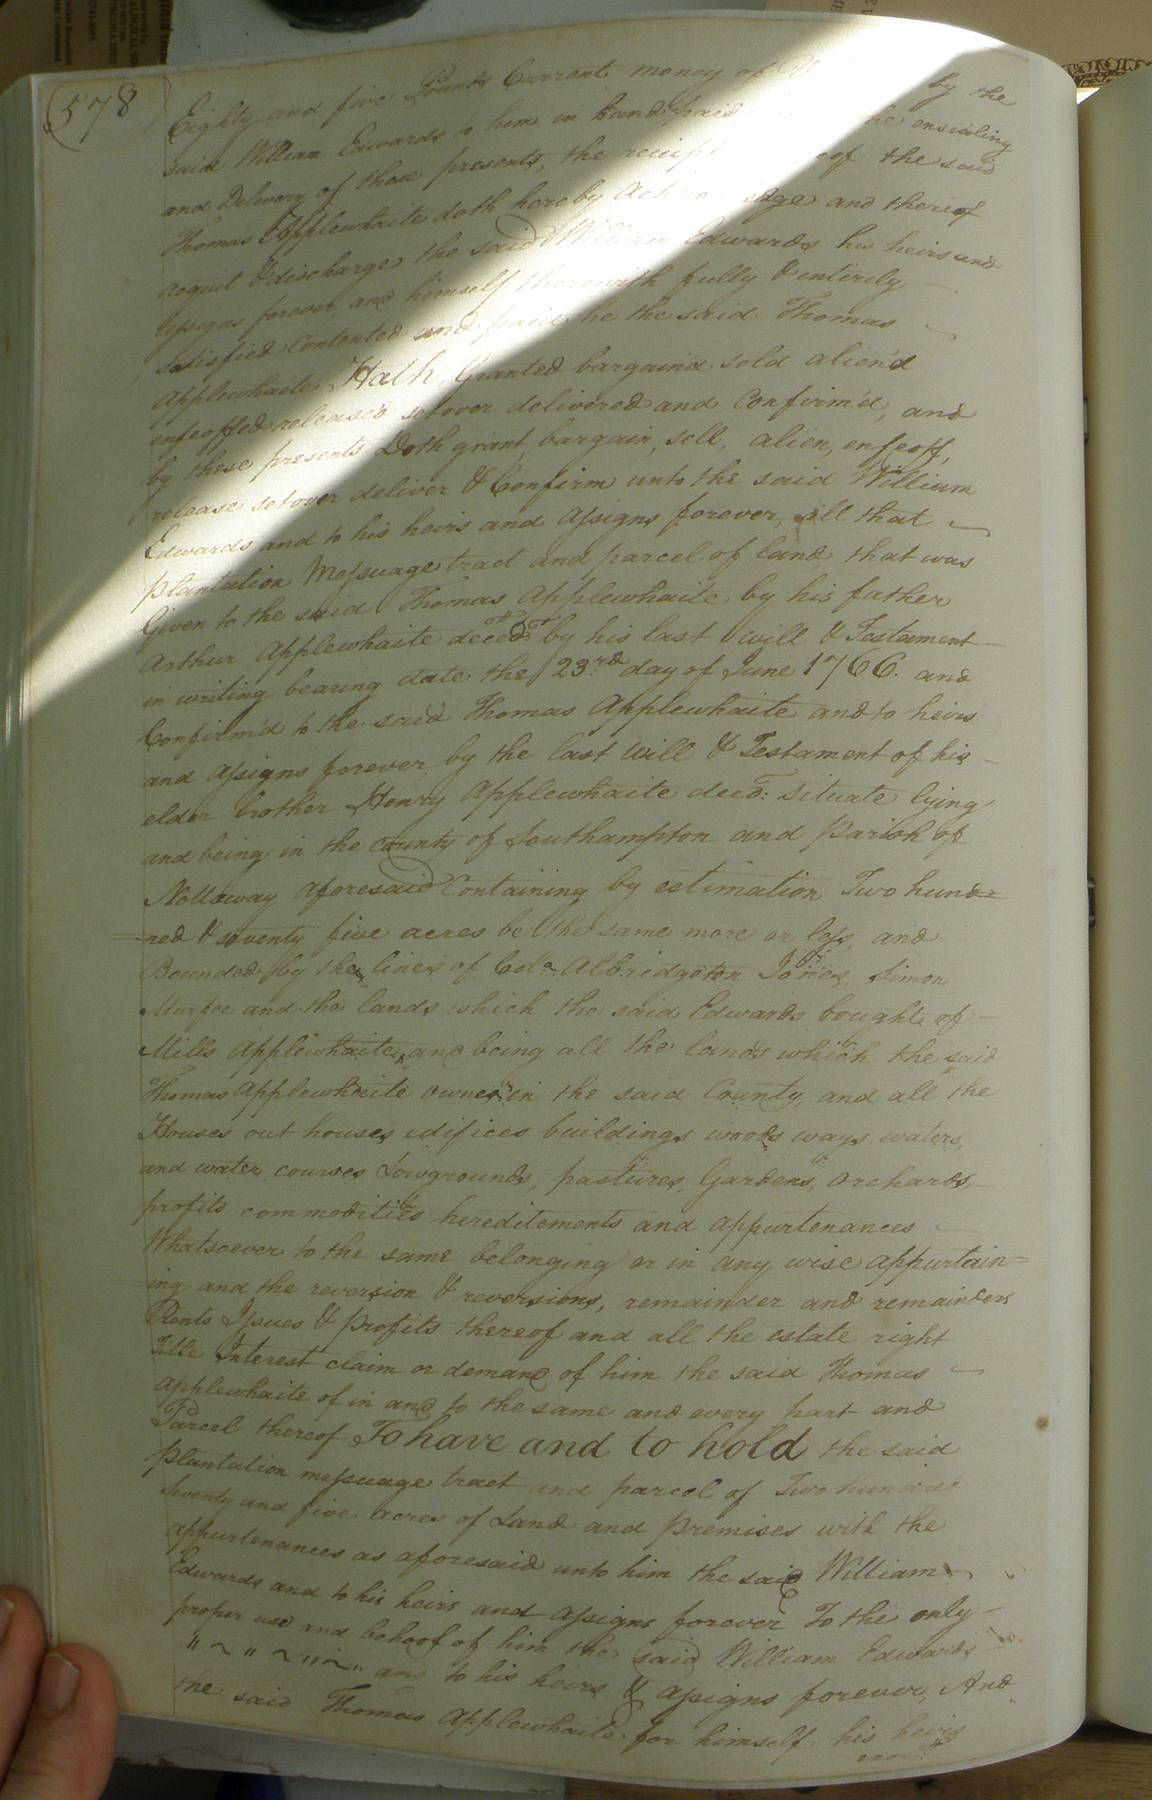 (578
Eighty and five Pounds Current money of by the
said William Edwards to him in hand paid the ensealing
and Delivery of those presents, the receipt eof the said
Thomas Applewhaite doth hereby Ackno edge and thereof
acquit & discharge the said William Edwards his heirs and
assigns forever, and himself therewith fully & entirely
satisfied Contented and paid, he the said Thomas
Applewhaite Hath Granted bargain'd sold alien'd
enfeoffed releas'd setover delivered and Confirm'd, and
by these presents Doth grant, bargain, sell, alien, enfeoff,
release setover deliver & Confirm unto the said William
Edwards and to his heirs and assigns forever, all that
plantation Messuage tract and parcel of land, that was
Given to the said Thomas Applewhaite by his father
Arthur Applewhaite deced by his last will & Testament
in writing bearing date the 23rd day of June 1766. and
Confirm'd to the said Thomas Applewhaite and to heirs
and assigns forever, by the last Will & Testament of his
elder brother Henry Applewhaite decd: Situate lying
and being in the county of Southampton and Parish of
Nottoway aforesaid Containing by estimation Two hund=
=red & seventy five acres be the same more or less, and
Bounded by the lines of Colo. Albridgeton Jones, Simon
Murfee and the lands which the said Edwards bought of
Mills Applewhaite, and being all the lands which the said
Thomas Applewhaite ownes in the said County, and all the
Houses out houses edifices buildings woods ways waters,
and water courses Lowgrounds, pastures, Gardens, orchards,
profits commodities hereditements and appurtenances
Whatsoever to the same belonging or in any wise appurtain=
=ing and the reversion & reversions, remainder and remainders
Rents Issues & Profits thereof and all the estate right
Title Interest claim or demand of him the said Thomas
Applewhaite of in and to the same and every part and
Parcel thereof To have and to hold the said
plantation messuage tract and parcel of Two hundred
Seventy and five acres of Land and Premises with the
appurtenances as aforesaid unto him the said William
Edwards and to his heirs and assigns forever To the only
proper use and behoof of him the said William Edwards
" ~ " ~ " ~ " and to his heirs & assigns forever, And
the said Thomas Applewhaite for himself, his heirs